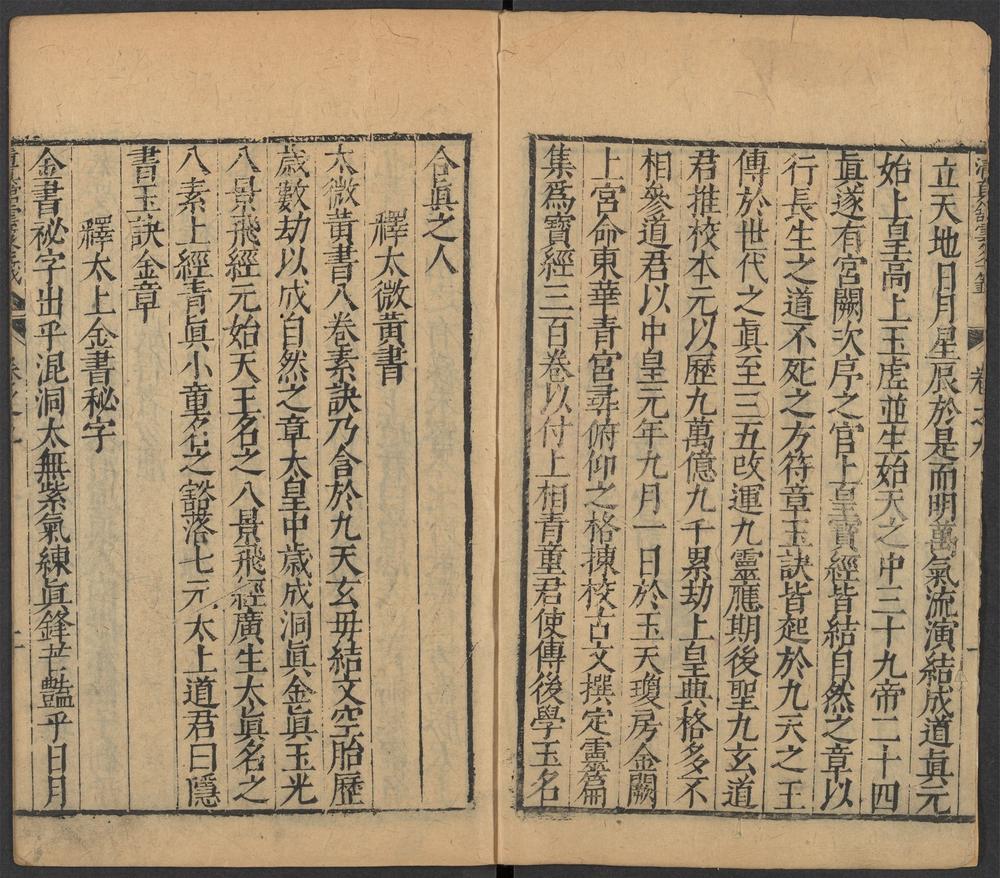 立天地日月星辰於是而明萬氣流演結成道眞元
始上皇高上玉虛並生始天之中三十九帝二十四
眞遂有宮闕次序之官上皇寶經皆結自然之章以
行長生之道不死之方符章玉訣皆起於九天之王
傳於世代之眞至三五改運九靈應期後聖九玄道
君推校本元以歷九萬億九千累劫上皇典格多不
相參道君以中皇元年九月一日於玉天瓊房金闕
上宮命東華青宮尋俯仰之格揀校古文撰定靈篇
集爲寶經三百卷以付上相青童君使傳後學玉名
合眞之人
釋太微黃書
太微黃書八卷素訣乃含於九天玄毋結文空胎歷
歲數劫以成自然之章太皇中歲成洞眞金眞玉光
八景飛經元始天王名之八景飛經廣生太眞名之
八素上經青眞小童名之豁落七元太上道君曰隱
書玉訣金章
釋太上金書秘字
金書祕字出乎混洞太無紫氣練眞鋒芒豔乎日月